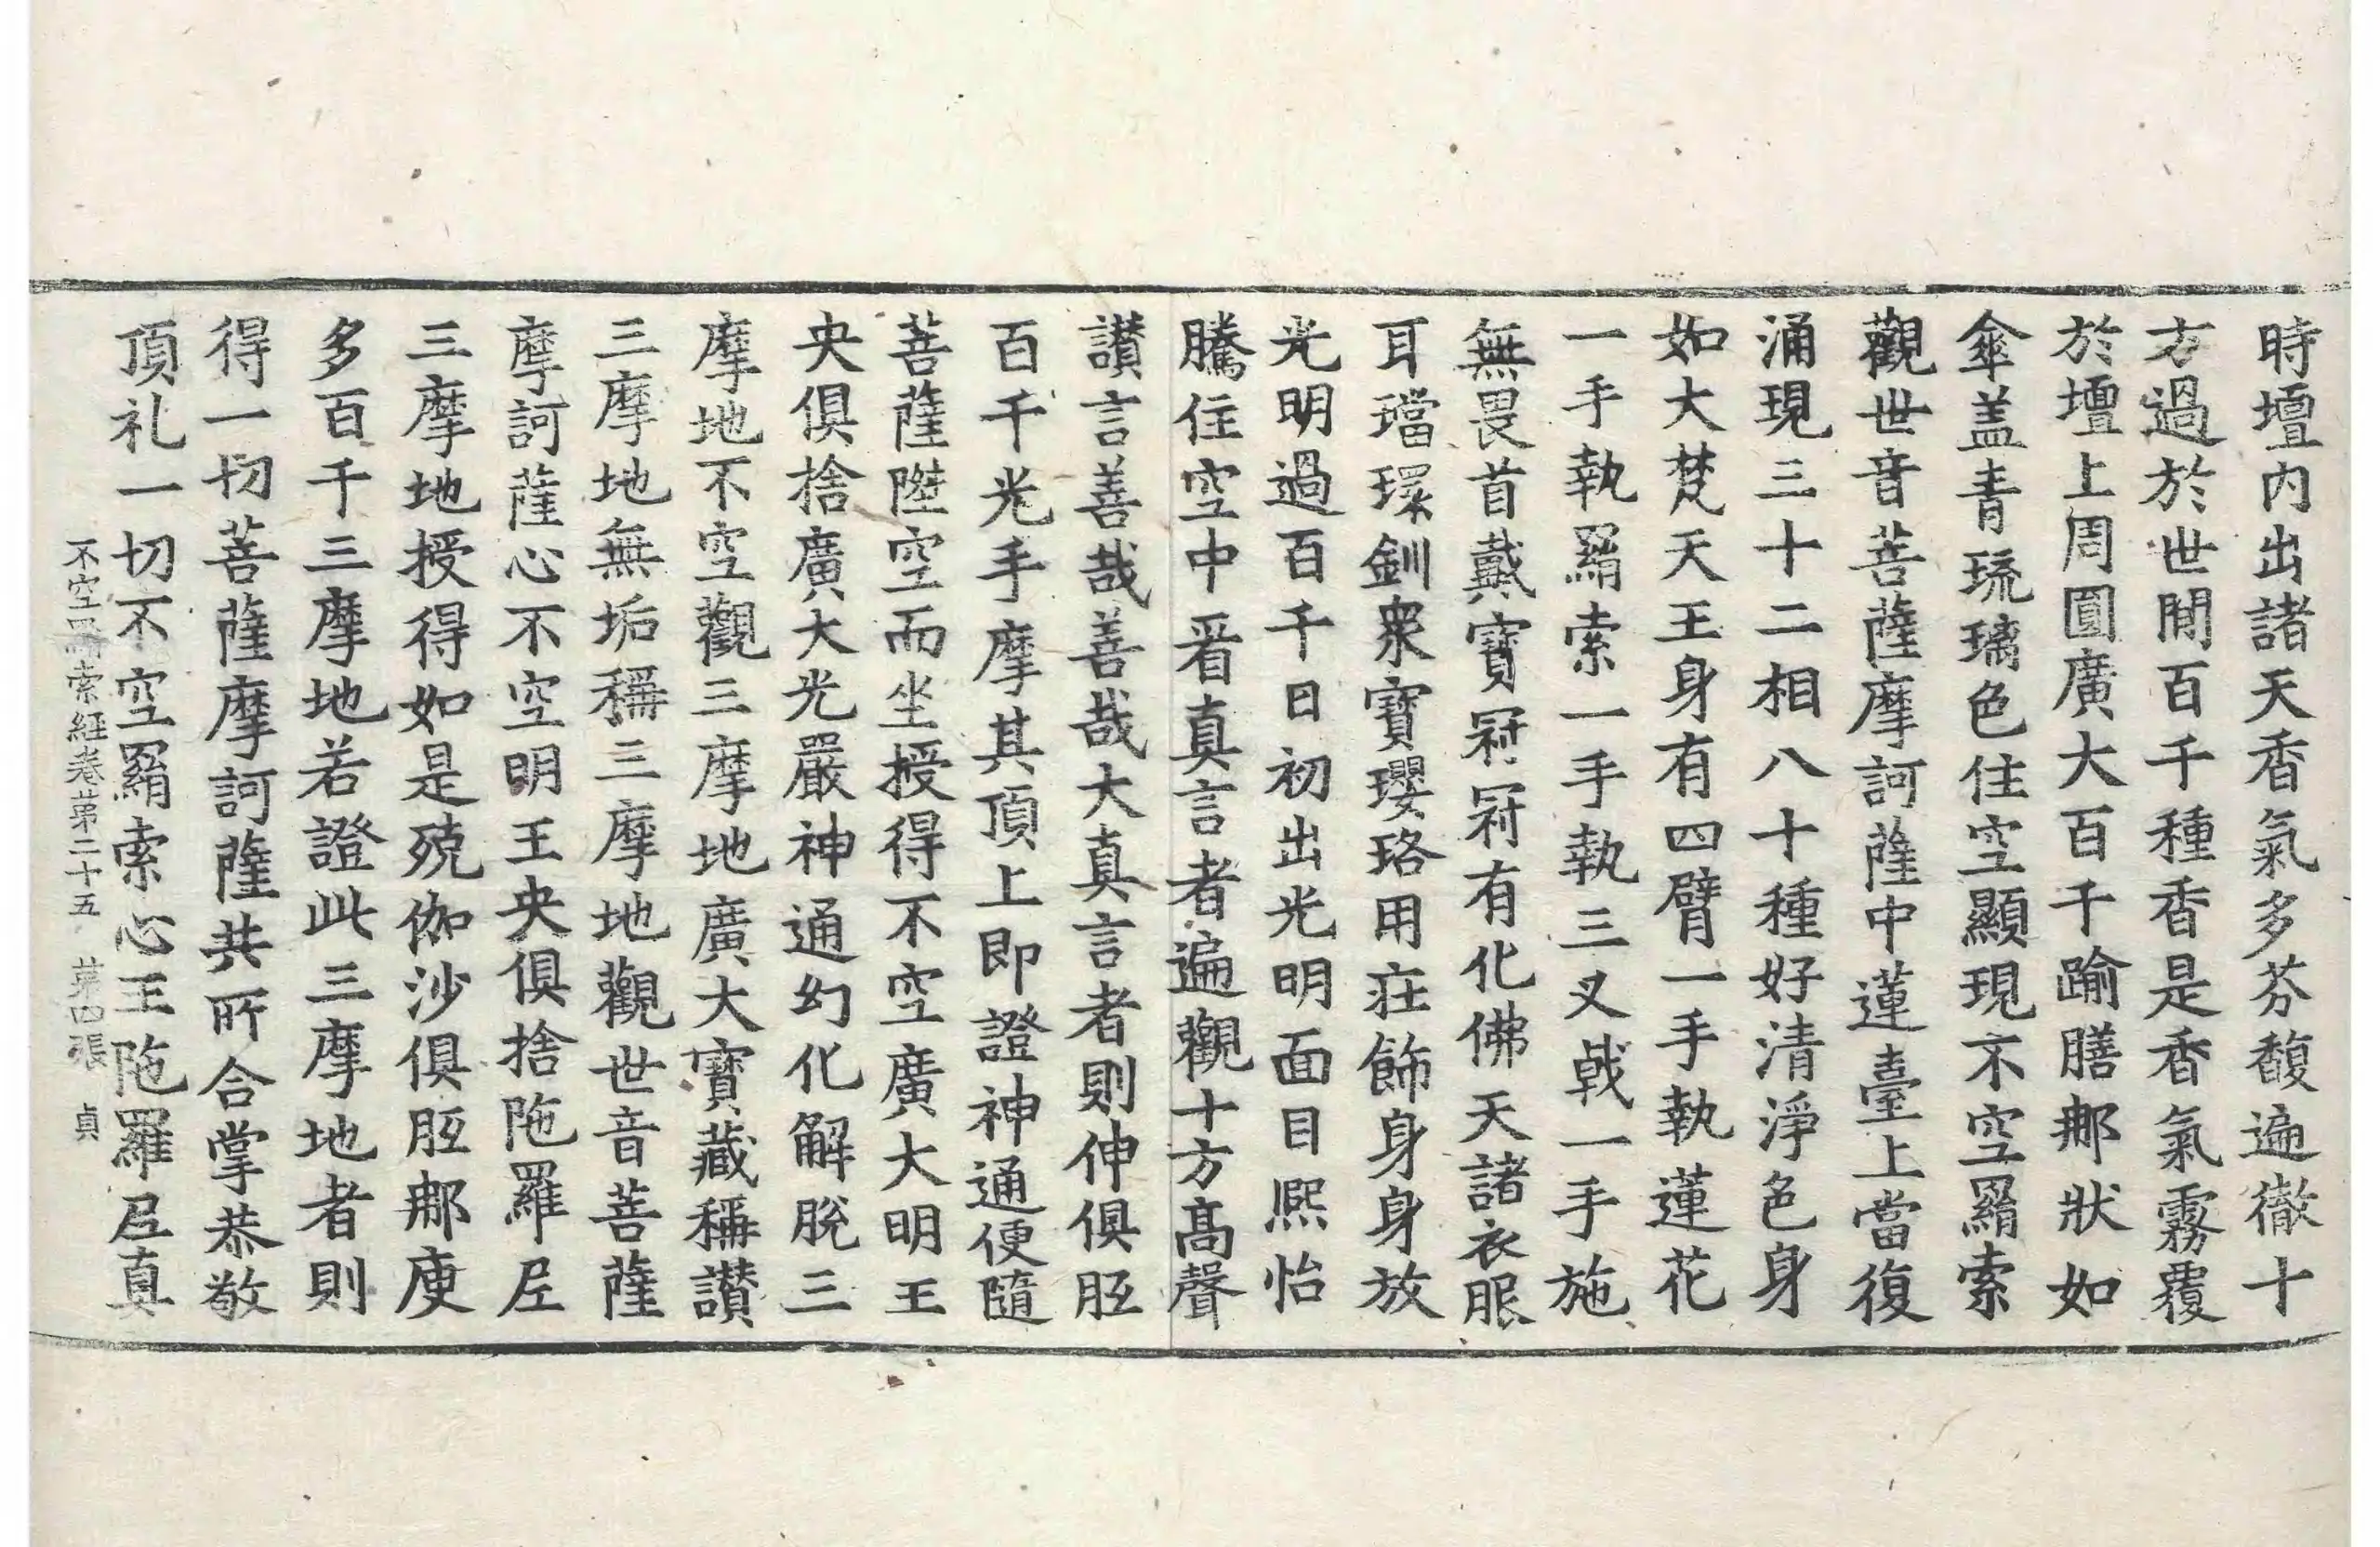 時壇内出諸天香氣多芬馥遍徹十
方過於世間百千種香是香氣霧覆
於壇上周圓廣大百千踰膳那狀如
傘盖青琉璃色住空顯現不空羂索
觀世音菩薩摩訶薩中蓮臺上當復
涌現三十二相八十種好清淨色身
如大梵天王身有四臂一手執蓮花
一手執羂索一手執三叉戟一手施
無畏首戴寶冠冠有化佛天諸衣服
耳璫環釧衆寶瓔珞用莊飾身身放
光明過百千日初出光明面目熈怡
騰住空中看真言者遍觀十方高聲
讃言善哉善哉大真言者則伸俱胝
百千光手摩其頂上即證神通便隨
菩薩陞空而坐授得不空廣大明王
央俱捨廣大光嚴神通幻化解脫三
摩地不空觀三摩地廣大寶藏稱讃
三摩地無垢稱三摩地觀世音菩薩
摩訶薩心不空明王央俱捨陁羅尼
三摩地授得如是殑伽沙俱胝那庾
多百千三摩地若證此三摩地者則
得一切菩薩摩訶薩共所合掌恭敬
頂礼一切不空羂索心王陁羅尼真
不空羂索經卷第二十五 第四張 貞